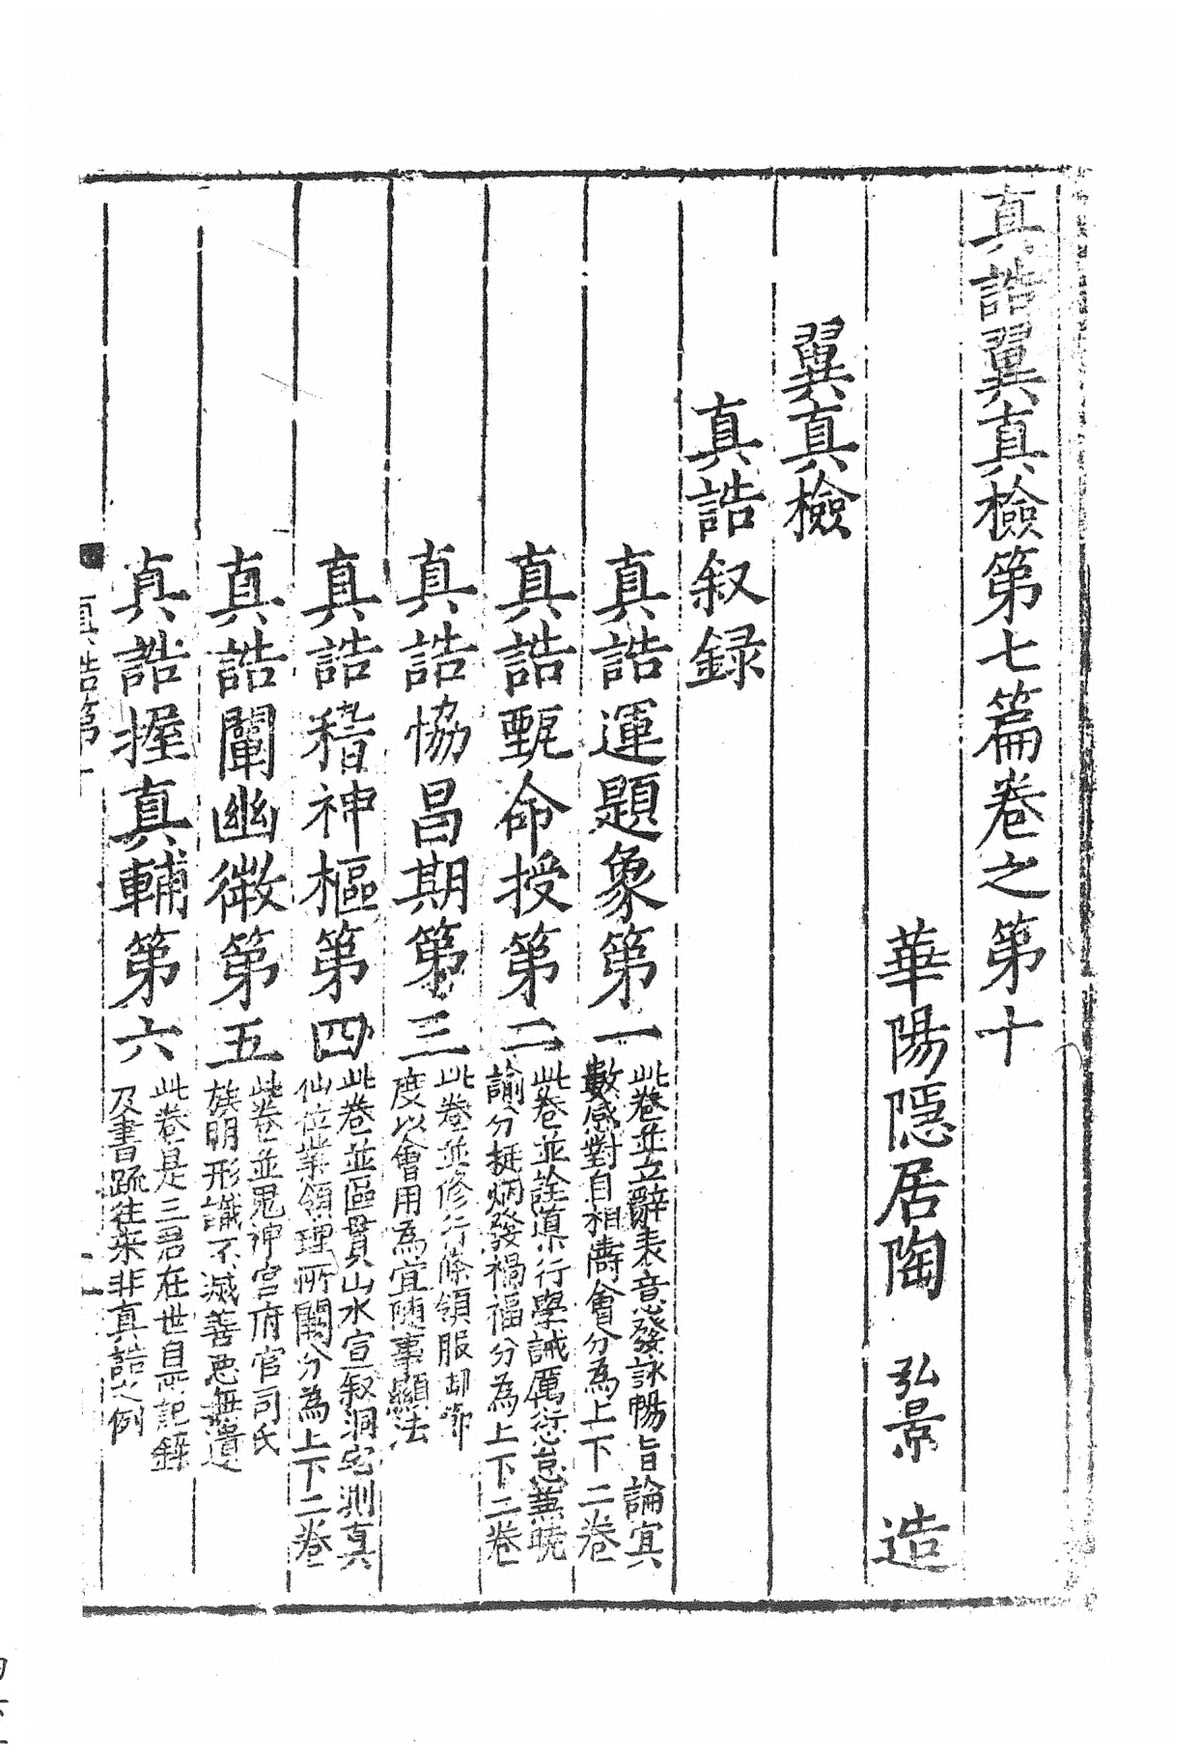 真誥翼真檢第七篇卷之第十
華陽隱居陶 弘景 造
翼真檢
真誥叙録
真誥運題象第一
此卷並立辭表意發詠暢旨論冥
數感對自相儔會分為上下二卷
真誥甄命授第二
此卷並詮導行學誡厲愆怠兼曉
諭分挺炳發禍福分為上下二卷
真誥恊昌期第三
此卷並修行條領服御節
度以會用為宜隨事顯法
真誥稽神樞第四
此卷並區貫山水宣叙洞宅測真
仙位業領理所闕分為上下二卷
真誥闡幽微第五
此卷並鬼神宮府官司氏
族明形識不滅善惡無遺
真誥握真輔第六
此卷是三君在世自所記録
及書䟽往来非真誥之例
真誥第十
一